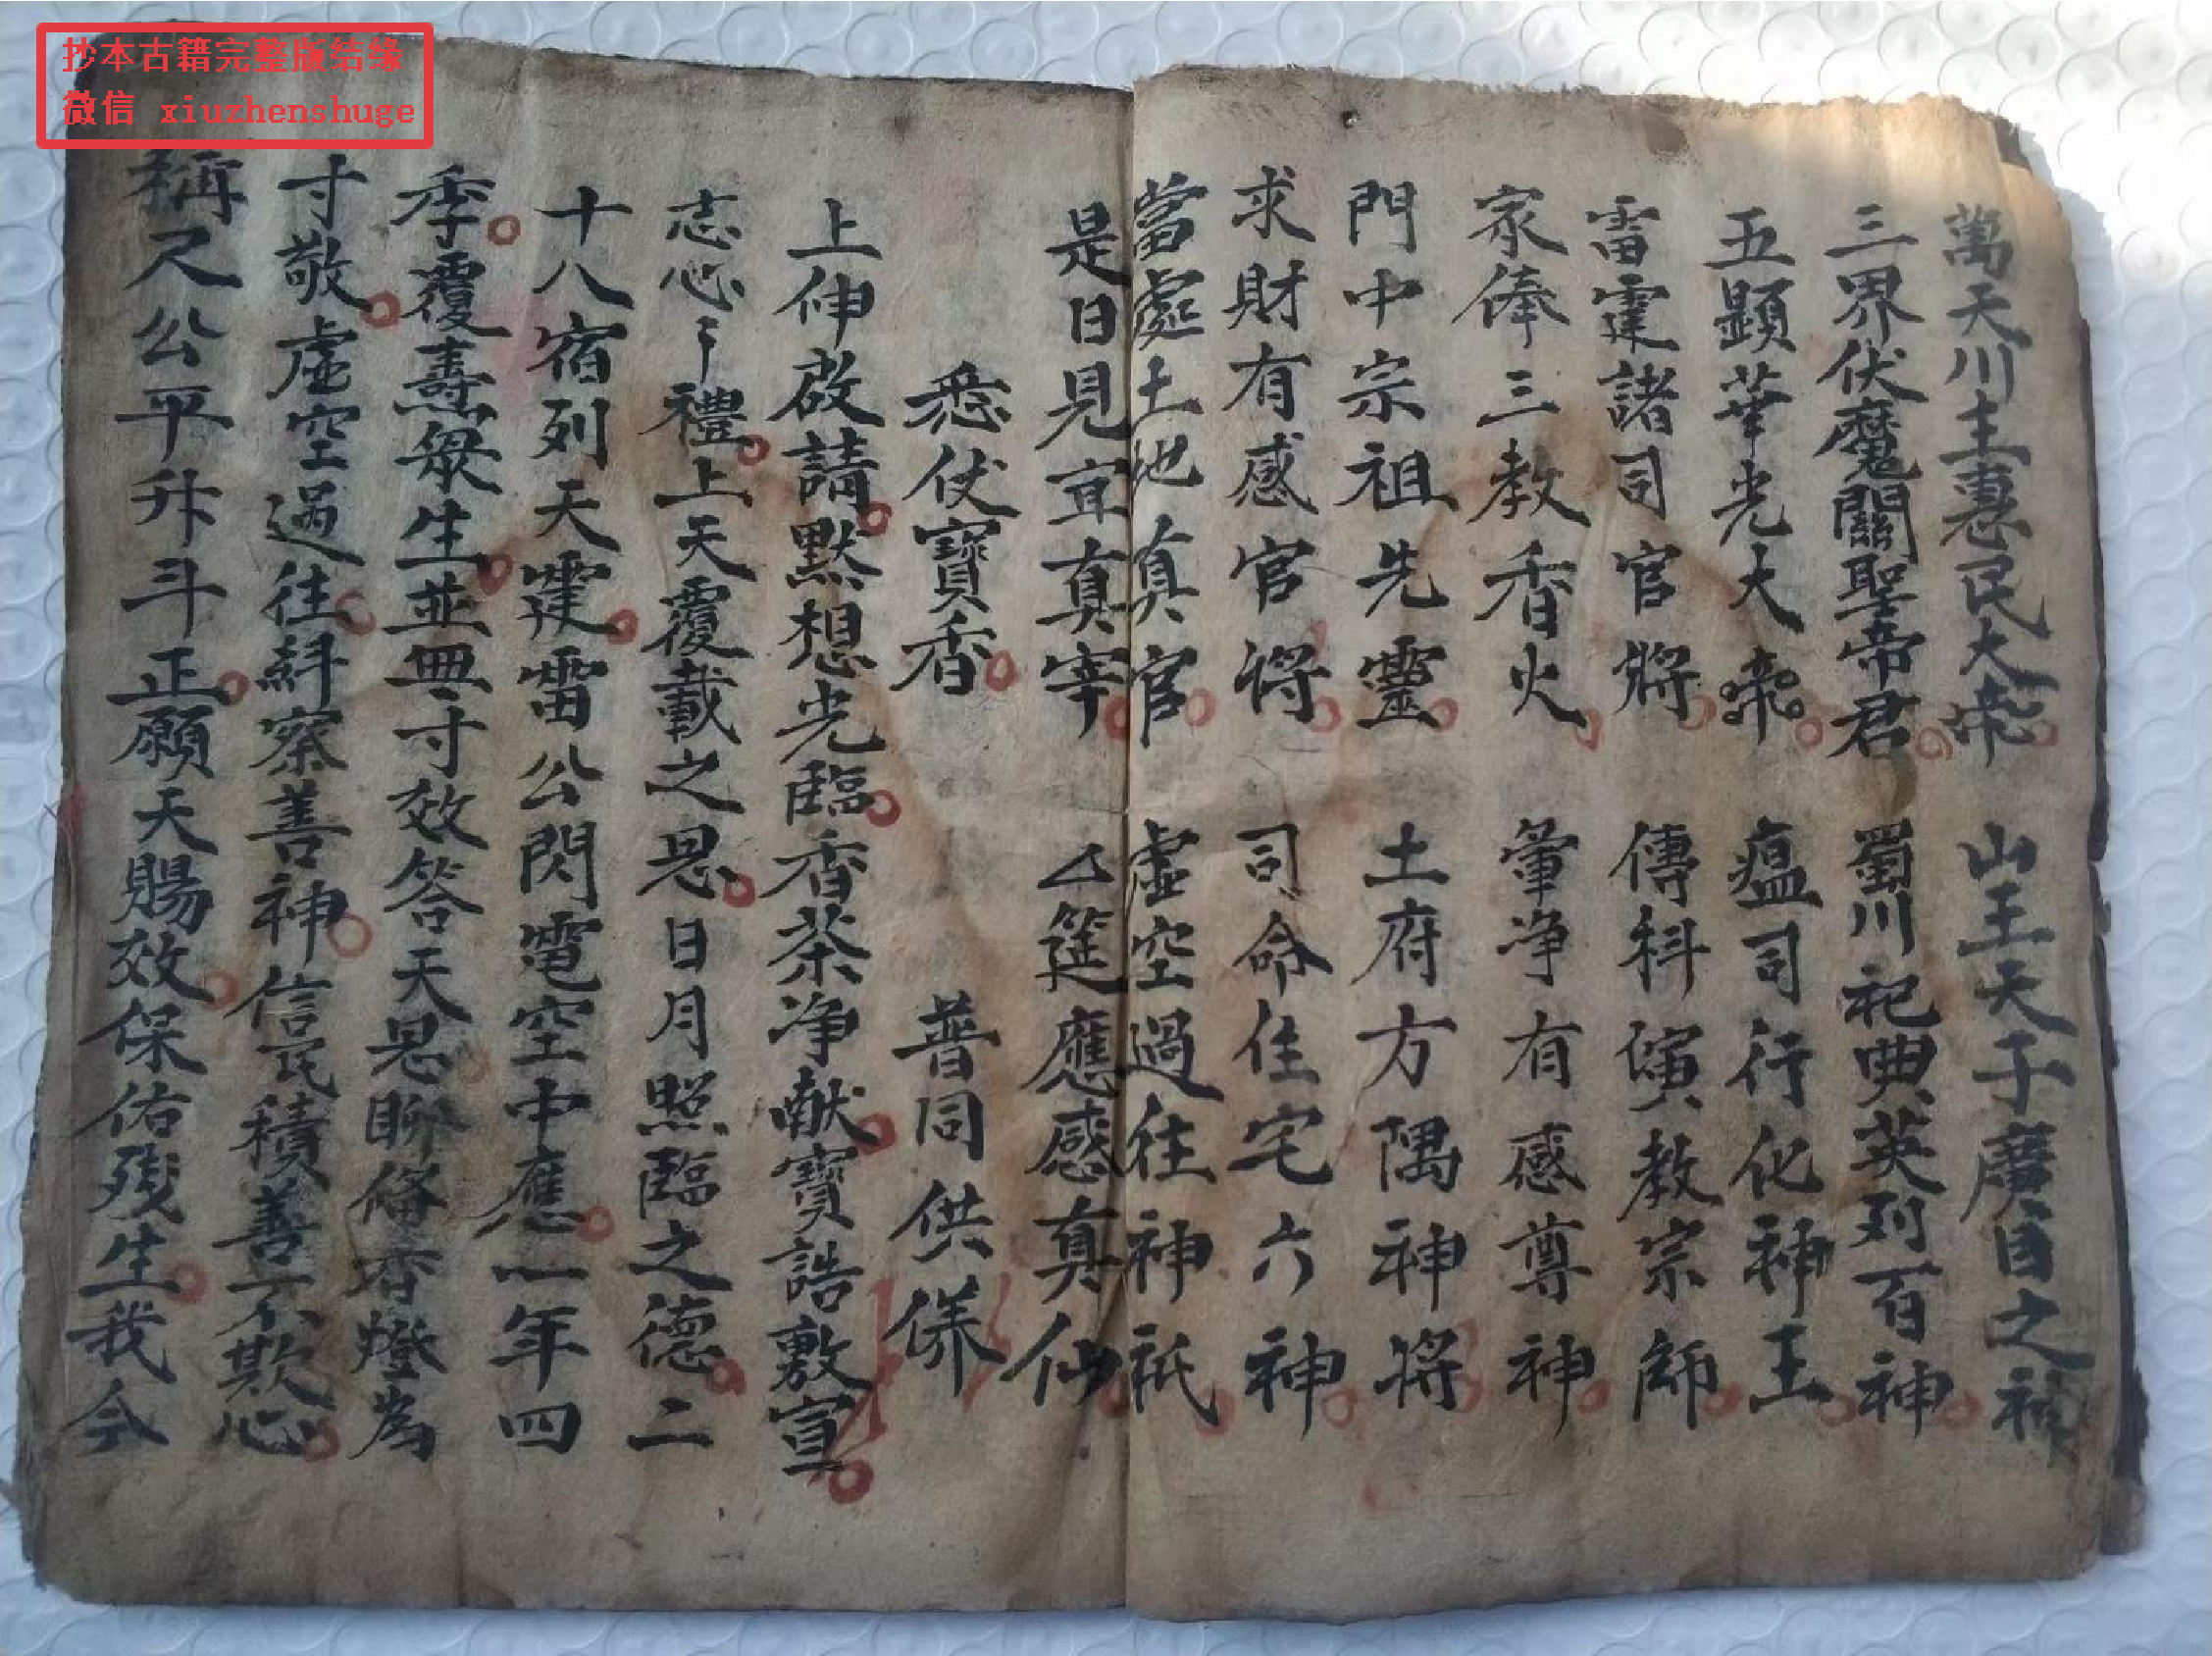 抄本古籍完整版结缘
微信 xiuzhenshuge
萬天川主惠民大帝 山王天子廣目之神
三界伏魔關聖帝君 蜀川祀典英列百神
五顕華光大帝 瘟司行化神王
雷霆諸司官將 傳科演教宗師
家俸三教香火 彙净有感尊神
門中宗祖先靈 土府方隅神将
求財有感官将 司命住宅六神
當處土地真官 虚空過往神祇
是日見宜真宰 厶筵應感真仙
悉仗寶香 普同供养
上伸啟請默想光臨香茶净献寶誥敷宣
志心〻禮上天覆載之恩日月照臨之德二
十八宿列天霆雷公閃電空中應一年四
季覆燾眾生並無寸效答天恩聊俻香燈為
寸敬虚空過往糾察善神信民積善不欺心
稱尺公平升斗正願天賜效保佑殘生我今